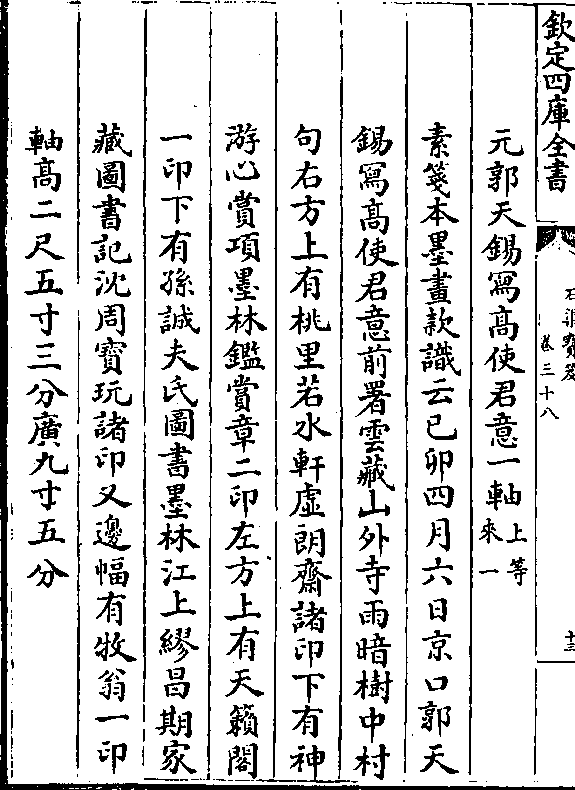 欽定四庫全書
石渠寶笈
卷三十八
十三
元郭天錫寫髙使君意一軸上等
來一
素箋本墨畫款識云已卯四月六日京口郭天
錫寫髙使君意前署雲藏山外寺雨暗樹中村
句右方上有桃里若水軒虛朗齋諸印下有神
游心賞項墨林鑑賞章二印左方上有天籟閣
一印下有孫誠夫氏圖書墨林江上繆曰期家
藏圖書記沈周寶玩諸印又邊幅有牧翁一印
軸髙二尺五寸三分廣九寸五分